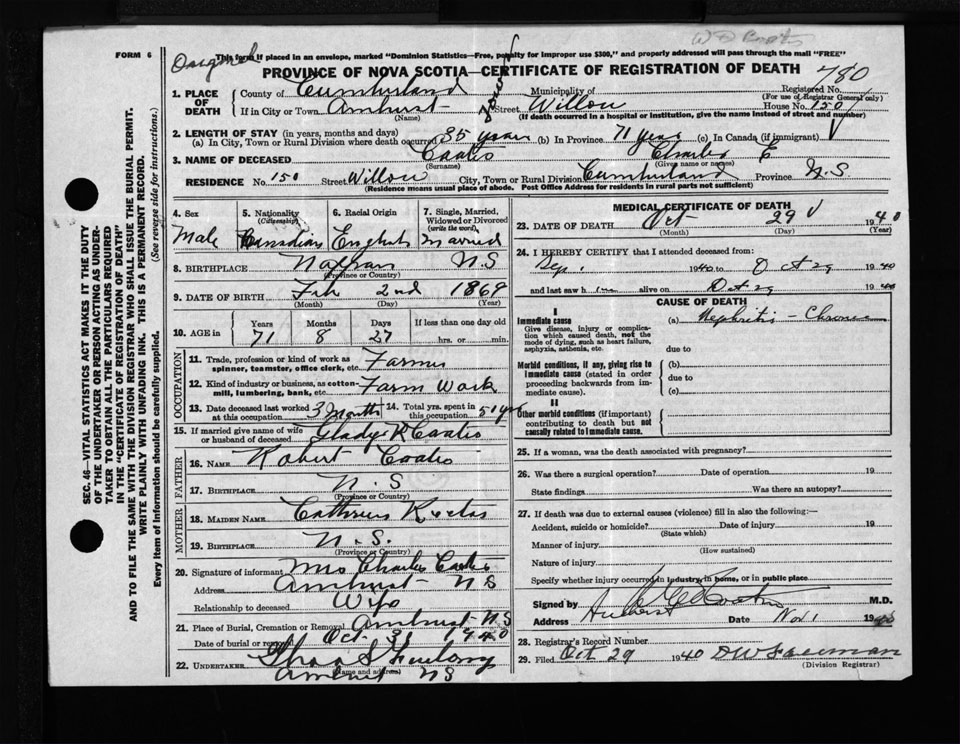 FORM 6
Original
This form if placed in an envelope, marked "Dominion Statistics—Free, penalty for improper use $300," and properly addressed will pass through the mail "FREE"
PROVINCE OF NOVA SCOTIA—CERTIFICATE OF REGISTRATION OF DEATH
780
1. PLACE OF DEATH
County of Cumberland
Municipality of
Registered No.
(For use of Registrar General only)
If in City or Town Amherst
(Name)
Street Willow
House No. 150
(If death occurred in a hospital or institution, give the name instead of street and number)
2. LENGTH OF STAY (in years, months and days)
(a) In City, Town or Rural Division where death occurred 35 years (b) In Province 71 years (c) In Canada (if immigrant)
3. NAME OF DECEASED Coates Charles E
(Surname) (Given name or names)
RESIDENCE No. 150 Street Willow City, Town or Rural Division Cumberland Province N.S
(Residence means usual place of abode. Post Office Address for residents in rural parts not sufficient)
4. Sex
Male
5. Nationality (Citizenship)
Canadian
6. Racial Origin
English
7. Single, Married, Widowed or Divorced (write the word)
Married
8. BIRTHPLACE Nappan N S
(Province or Country)
9. DATE OF BIRTH Feb 2nd 1869
(Month) (Day) (Year)
10. AGE in
Years Months Days If less than one day old
71 8 27 hrs. or min.
OCCUPATION
11. Trade, profession or kind of work as spinner, teamster, office clerk, etc. Farmer
12. Kind of industry or business, as cotton-mill, lumbering, bank, etc. Farm Work
13. Date deceased last worked at this occupation 3 Months
14. Total yrs. spent in this occupation 50 yrs
15. If married give name of wife or husband of deceased Gladys R Coates
FATHER
16. NAME Robert Coates
17. BIRTHPLACE N. S
(Province or Country)
MOTHER
18. MAIDEN NAME
19. BIRTHPLACE N. S.
(Province or Country)
20. Signature of informant Mrs Charles Coates
Address Amherst N S
Relationship to deceased Wife
21. Place of Burial, Cremation or Removal Amherst N.S
Date of burial or removal Oct 31 1940
22. UNDERTAKER
Amherst N S
(Name and address)
MEDICAL CERTIFICATE OF DEATH
23. DATE OF DEATH Oct 29 1940
(Month) (Day) (Year)
24. I HEREBY CERTIFY that I attended deceased from:
Sep. 1940 to Oct 29 1940
and last saw him alive on Oct 29 1940
CAUSE OF DEATH
I
Immediate cause
Give disease, injury or complication which caused death, not the mode of dying, such as heart failure, asphyxia, asthenia, etc.
(a) Nephritis – Chronic
due to
Morbid conditions, if any, giving rise to immediate cause (stated in order proceeding backwards from immediate cause).
(b)
due to
(c)
II
Other morbid conditions (if important) contributing to death but not causally related to immediate cause.
25. If a woman, was the death associated with pregnancy?
26. Was there a surgical operation? Date of operation 19
State findings Was there an autopsy?
27. If death was due to external causes (violence) fill in also the following:—
Accident, suicide or homicide? Date of injury 19
(State which)
Manner of injury
(How sustained)
Nature of injury
Specify whether injury occurred in industry, in home, or in public place
Signed by M.D.
Address Amherst Date Nov 1 1940
28. Registrar's Record Number
29. Filed Oct 29 1940 D W Freeman
(Division Registrar)
SEC. 46—VITAL STATISTICS ACT MAKES IT THE DUTY
OF THE UNDERTAKER OR PERSON ACTING AS UNDERTAKER TO OBTAIN ALL THE PARTICULARS REQUIRED
IN THE "CERTIFICATE OF REGISTRATION OF DEATH"
AND TO FILE THE SAME WITH THE DIVISION REGISTRAR WHO SHALL ISSUE THE BURIAL PERMIT.
WRITE PLAINLY WITH UNFADING INK. THIS IS A PERMANENT RECORD.
Every item of information should be carefully supplied. (See reverse side for instructions.)